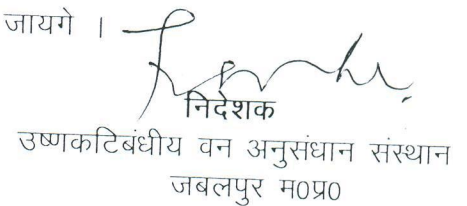 जायगे ।
निदेशक
उष्णकटिबंधीय वन अनुसंधान संस्थान
जबलपुर म0प्र0